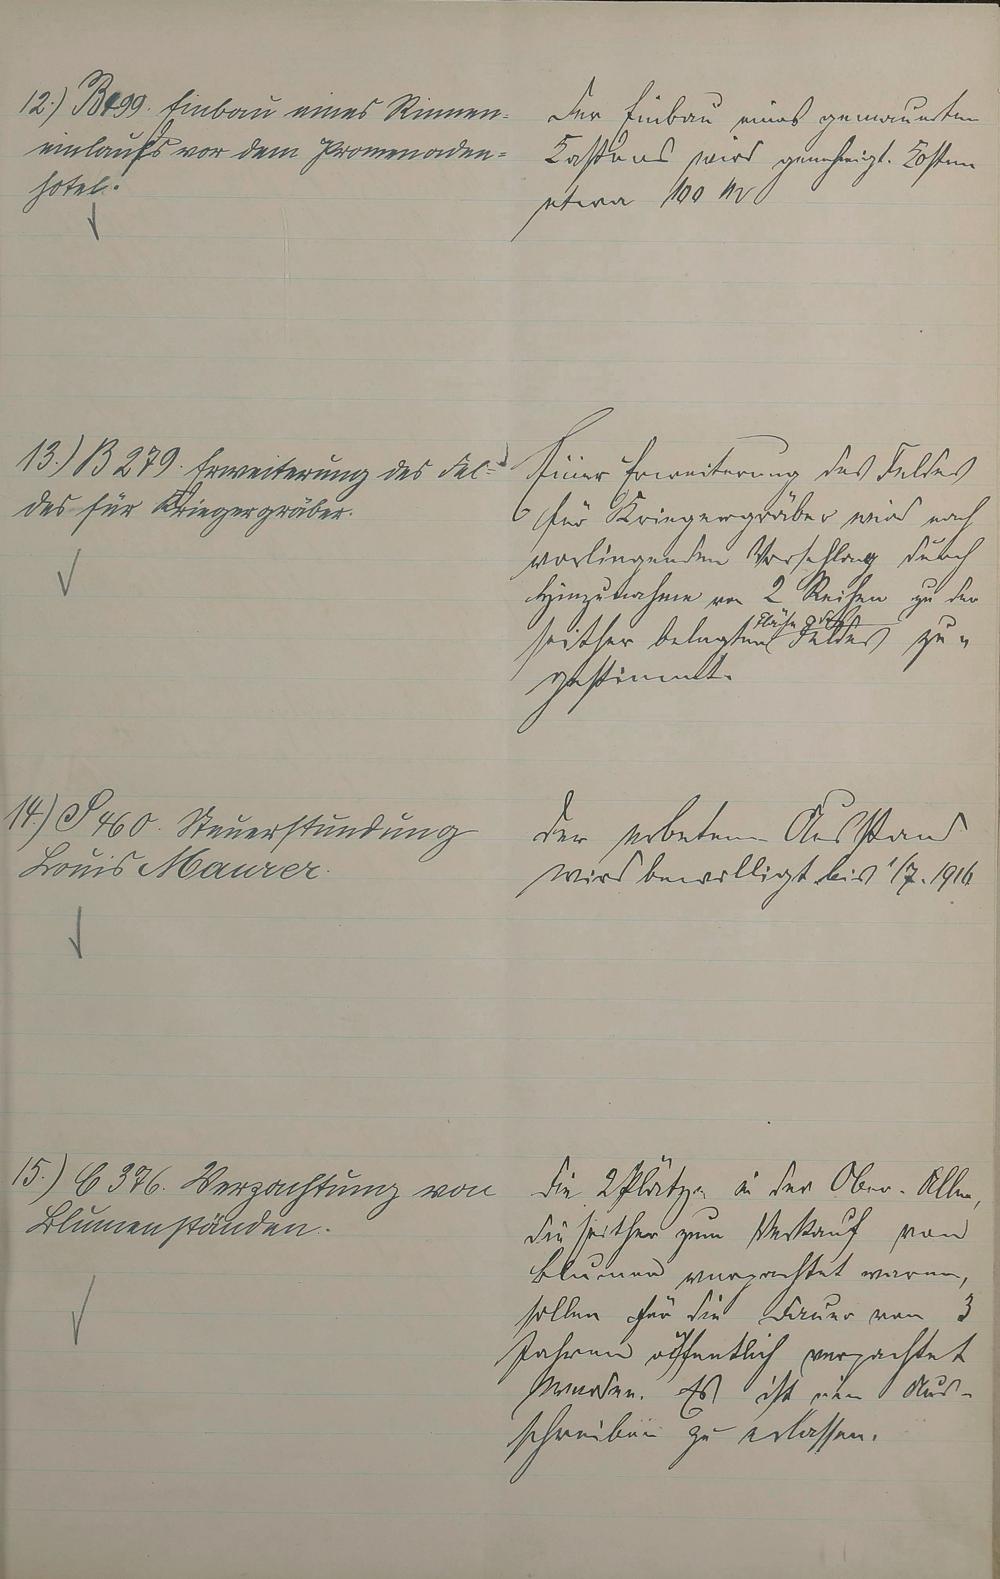 12.) B 499. Einbau eines Rinnen-
einlaufs vor dem Promenaden-
hotel.
Der Einbau eines gemauerten
Kastens wird genehmigt. Kosten
etwa 100 M
13.) B 279. Erweiterung des Fel-
des für Kriegergräber.
Einer Erweiterung des Feldes
für Kriegergräber wird nach
vorliegendem Vorschlag durch
Hinzunahme von 2 Reihen zu der
seither belegten Feldes zu-
gestimmt.
14.) S 460. Steuerstundung
Louis Maurer.
Der erbetene Ausstand
wird bewilligt bis 1/7. 1916
15.) C 376. Verpachtung von
Blumenständen.
Die 2 Plätze in der Ober-Allee,
die seither zum Verkauf von
Blumen verpachtet waren,
sollen für die Dauer von 3
Jahren öffentlich verpachtet
werden. Es ist ein Aus-
schreiben zu erlassen.